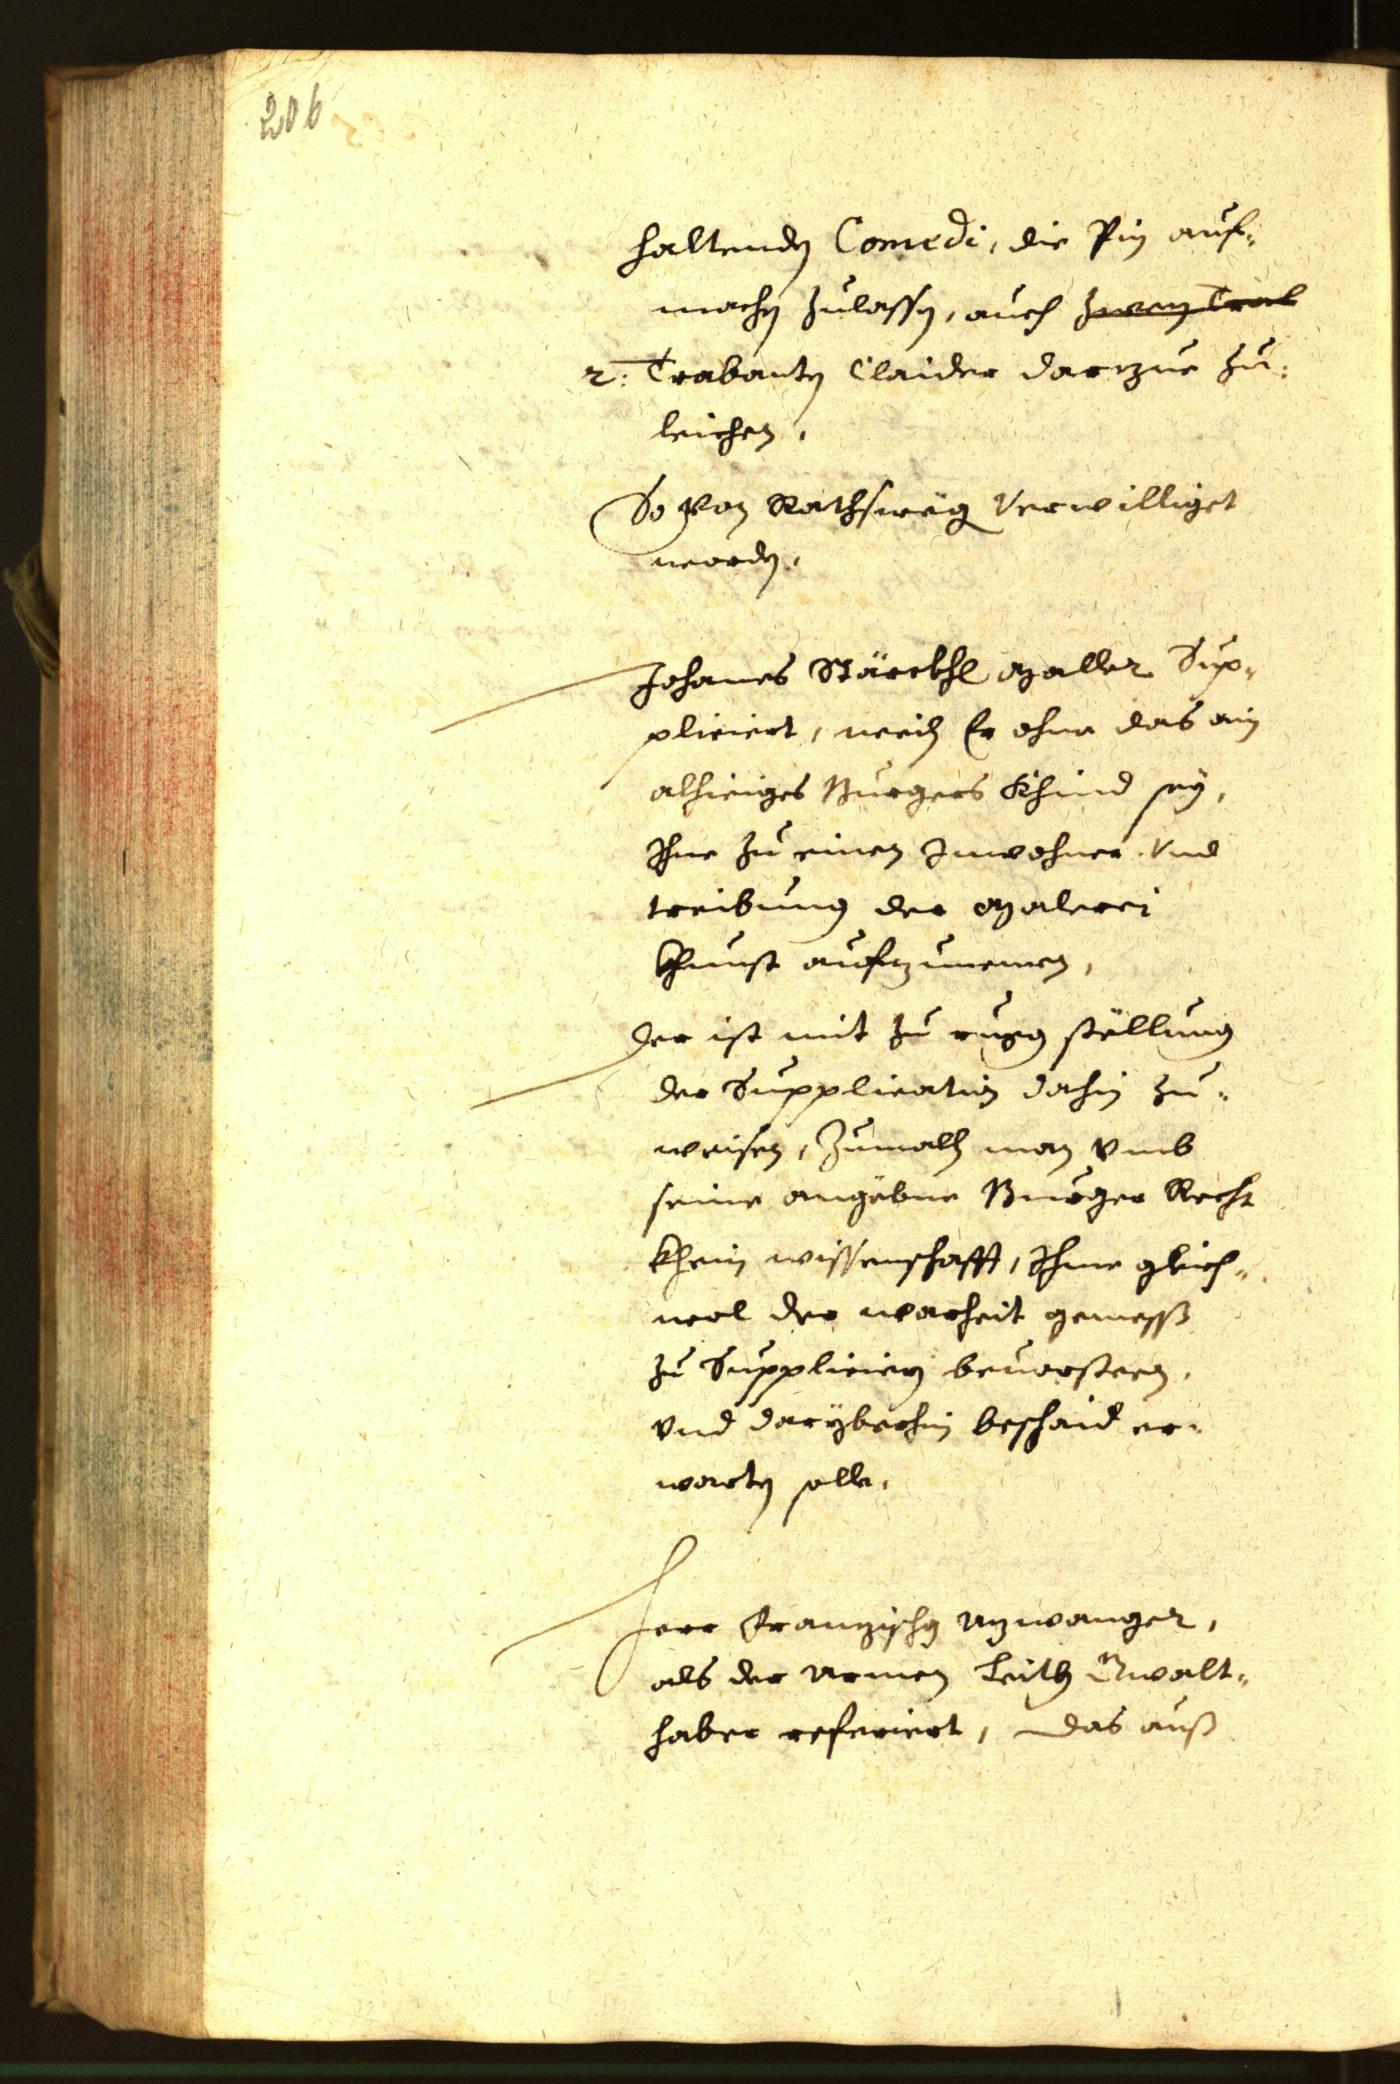 206
haltenden Comedi, die Pin auf-
machen zulassen, auch zwen Trab
2: Trabanten Claider darzue zu-
leichen,
So von Rathsweg verwilliget
worden,
Johanes Stärckhl Maller Sup-
pliciert, weiln Er ohne das ain
alhieiges Burgers Khind sey,
Ihne zu einen Inwohner vnd
treibung der Malerei
Khunst aufzunemen,
Der ist mit zu rugg stëllung
der Supplication dahin zu-
weisen, Zumalln man vmb
seine angëbne Burger Recht
khein wissenschafft, Ihme gleich-
wol der warheit gemesß
zu Suppliciern beuorsteen,
vnd darÿberhin beschaid er-
warten solle,
Herr Franzischg
als der Armen Leith Gwalt-
haber referiert, Das auß